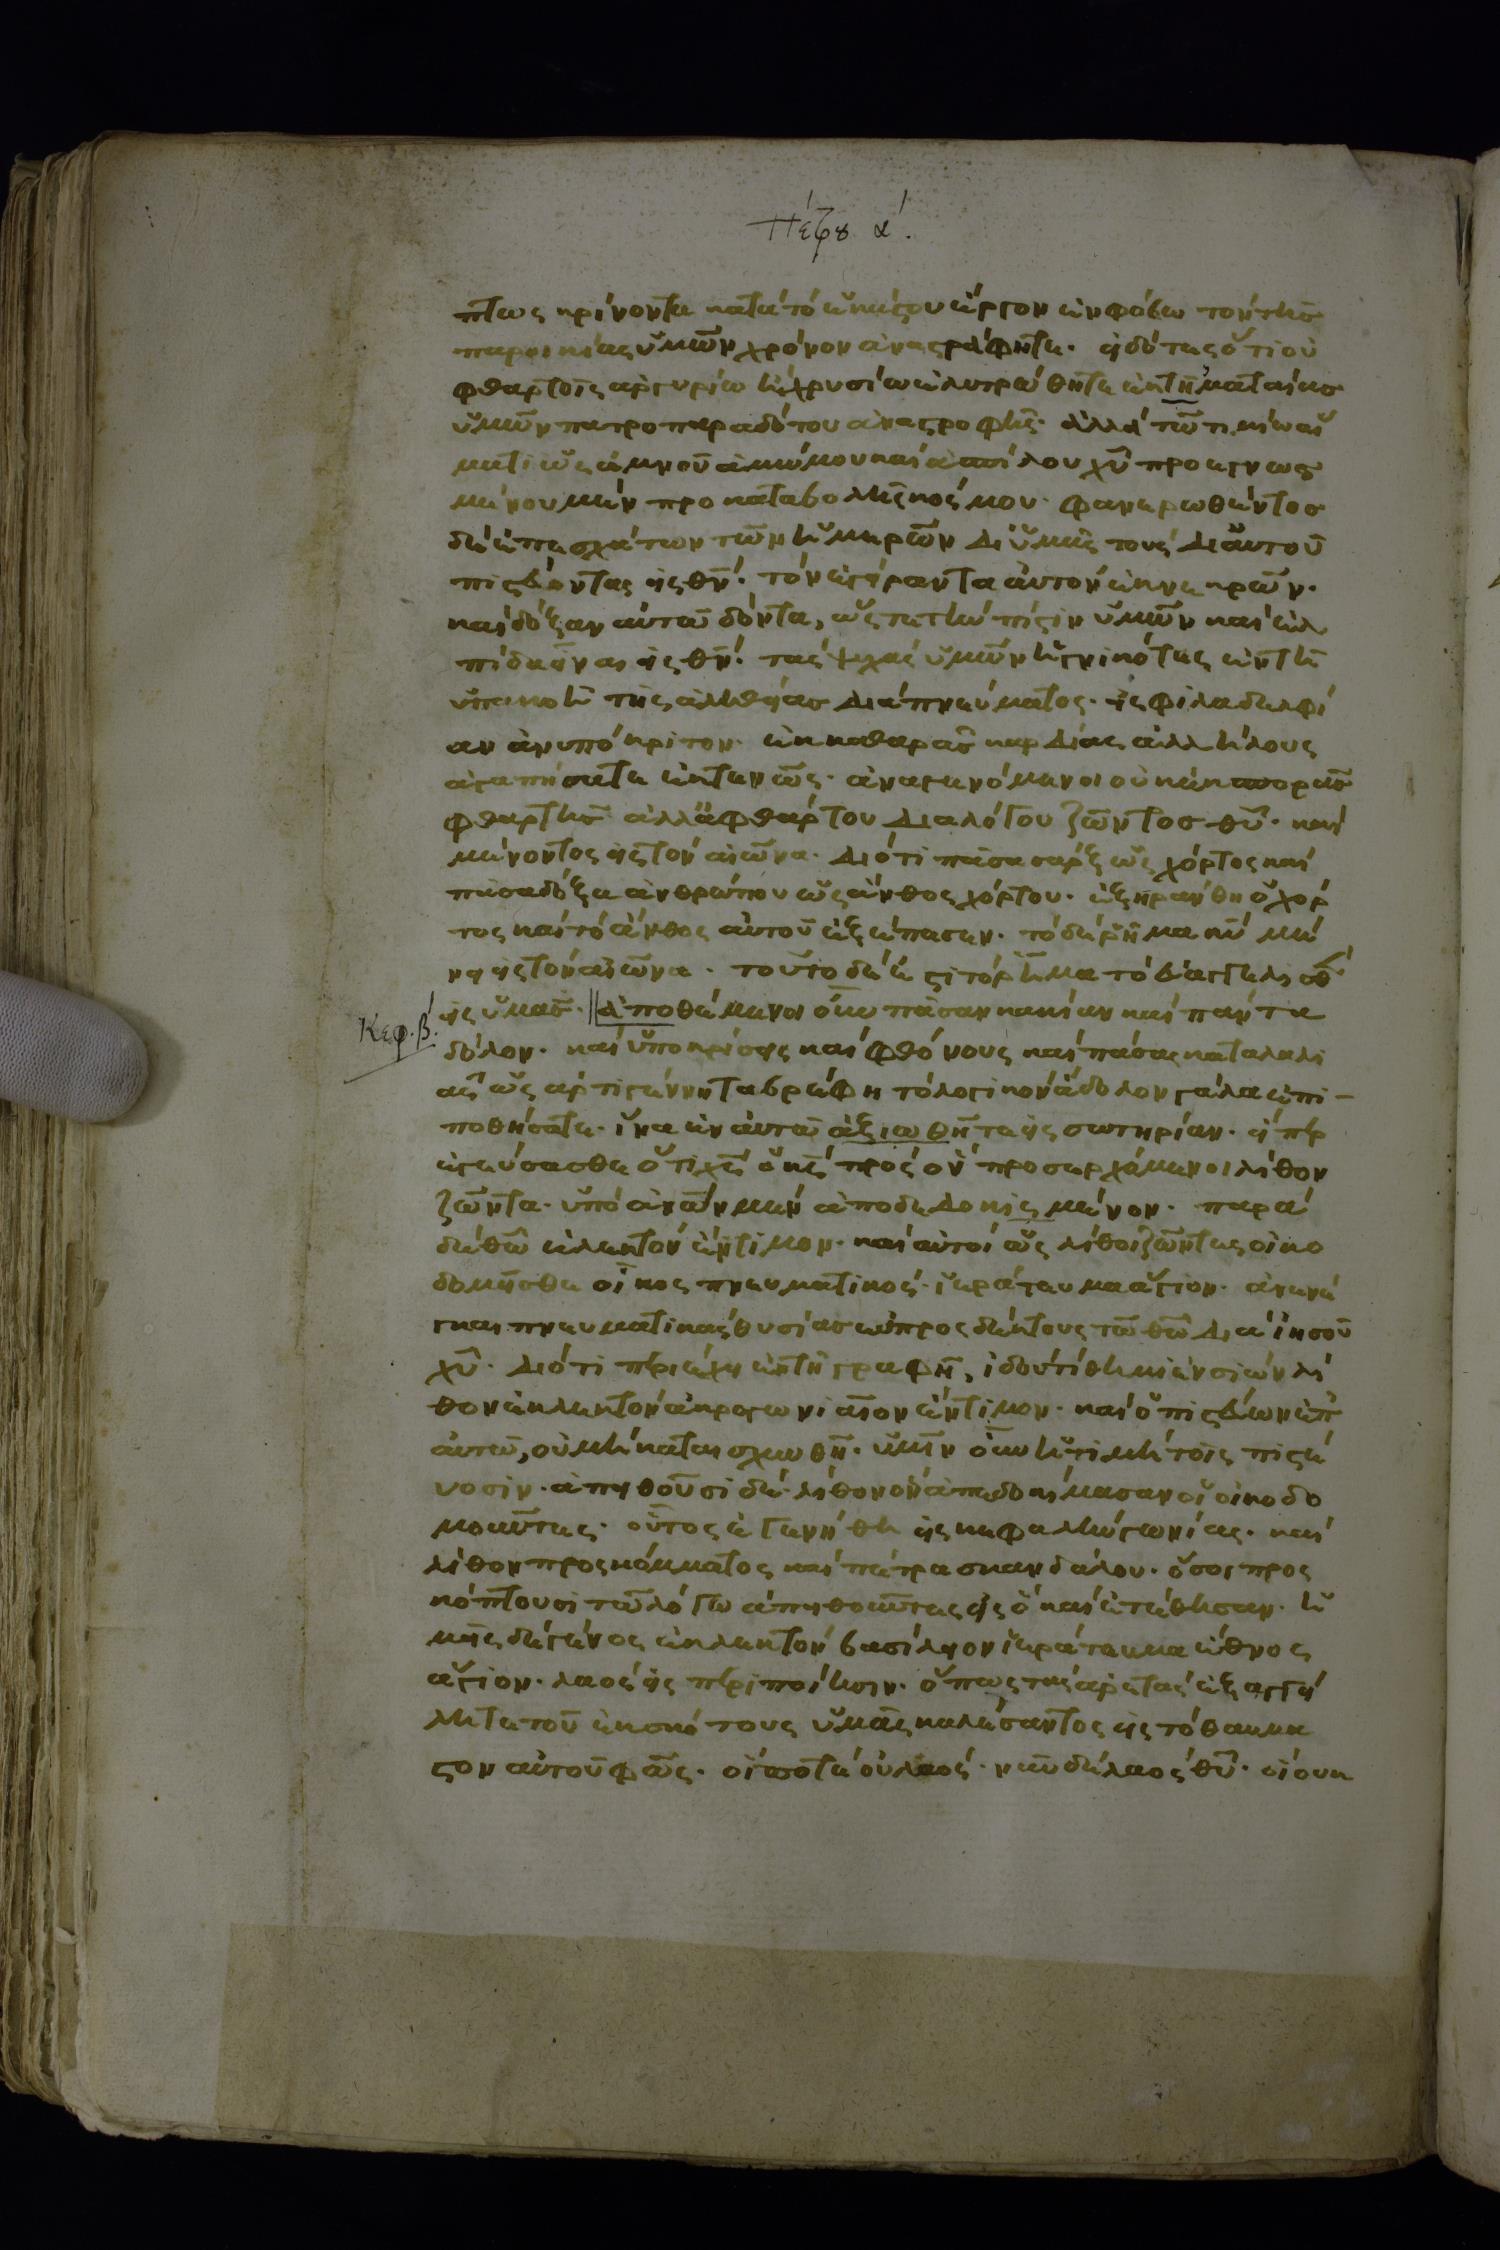 Πέτρου α΄.
πτως κρίνοντα κατὰ τὸ ἑκάστου ἔργον ἐν φόβω τὸν τῆς
παροικίας ὑμῶν χρόνον ἀναστράφητε· εἰδότες ὅτι οὐ
φθαρτοῖς ἀργυρίω ἢ χρυσίω ἐλυτρώθητε ἐκ τῆς ματαίας
ὑμῶν πατροπαραδότου ἀναστροφῆς· ἀλλὰ τιμίω αἵ
ματι ὡς ἀμνοῦ ἀμώμου καὶ ἀσπίλου χῦ προεγνωσ
μένου μὲν προ καταβολῆς κόσμου· φανερωθέντος
δὲ ἐπ ἐσχάτων τῶν ἡμερῶν δι ὑμᾶς τοὺς δι αὐτοῦ
πιστεύοντας εἰς θν· τὸν ἐγείραντα αὐτὸν ἐκ νεκρῶν·
καὶ δόξαν αὐτῶ δόντα, ὥστε τὴν πίστιν ὑμῶν καὶ ἐλ
πίδα εἶναι εἰς θν· τὰς ψυχὰς ὑμῶν ἡγνικότες ἐν τῆ
ὑπακοῆ τῆς ἀληθείας διὰ πνεύματος· εἰς φιλαδελφί
αν ἀνυπόκριτον· ἐκ καθαρᾶς καρδίας ἀλλήλους
ἀγαπήσατε ἐκτενῶς· ἀναγεννόμενοι οὐκ ἐκ σπορᾶς
φθαρτῆς ἀλλ ἀφθάρτου διὰ λόγου ζῶντος θῦ· καὶ
μένοντος εἰς τὸν αἰῶνα· διότι πᾶσα σὰρξ ὡς χόρτος καὶ
πᾶσα δόξα ἀνθρώπου ὡς ἄνθος χόρτου· ἐξηράνθη ὁ χόρ
τος καὶ τὸ ἄνθος αὐτοῦ ἐξέπεσεν· τὸ δὲ ῥῆμα κῦ μέ
νει εἰς τὸν αἰῶνα· τοῦτο δέ ἐστι τὸ ῥῆμα τὸ εὐαγγελισθὲν
εἰς ὑμᾶς· || ἀποθέμενοι οὖν πᾶσαν κακίαν καὶ πάντα
Κεφ. β΄.
δόλον· καὶ ὑποκρίσεις καὶ φθόνους καὶ πάσας καταλαλι
ὰς ὡς ἀρτιγέννητα βρέφη τὸ λογικὸν ἄδολον γάλα ἐπι-
ποθήσατε· ἵνα ἐν αὐτῶ ἀξιωθῆτε εἰς σωτηρίαν· εἴπερ
ἐγεύσασθε ὅτι χς ὁ κς πρὸς ὃν προσερχόμενοι λίθον
ζῶντα· ὑπὸ ἀνῶν μὲν ἀποδεδοκισμένον· παρὰ
δὲ θῶ ἐκλεκτὸν ἔντιμον· καὶ αὐτοὶ ὡς λίθοι ζῶντες οἰκο
δομῆσθε οἶκος πνευματικὸς· ἱεράτευμα ἅγιον· ἀνενέ
γκαι πνευματικὰς θυσίας εὐπροσδέκτους τῶ θῶ διὰ ἰησοῦ
χῦ· διότι περιέχει ἐν τῆ γραφῆ, ἰδοὺ τίθημι ἐν σιὼν λί
θον ἐκλεκτὸν ἀκρογωνιαῖον ἔντιμον· καὶ ὁ πιστεύων ἐπ
αὐτῶ, οὐ μὴ καταισχυνθῆ· ὑμῖν οὖν ἡ τιμὴ τοῖς πιστεύ
ουσιν· ἀπειθοῦσι δὲ λίθον ὃν ἀπεδοκίμασαν οἱ οἰκοδο
μοῦντες· οὗτος ἐγενήθη εἰς κεφαλὴν γωνίας· καὶ
λίθον προσκόμματος καὶ πέτρα σκανδάλου· ὅσοι προσ
κόπτουσι τῶ λόγω ἀπειθοῦντες εἰς ὃ καὶ ἐτέθησαν· ὑ
μεῖς δὲ γένος ἐκλεκτὸν βασίλειον ἱεράτευμα ἔθνος
ἅγιον· λαὸς εἰς περιποίησιν· ὅπως τὰς ἀρετὰς ἐξαγγεί
λητε τοῦ ἐκ σκότους ὑμᾶς καλέσαντος εἰς τὸ θαυμα
στὸν αὐτοῦ φῶς· οἵ ποτὲ οὐ λαὸς· νῦν δὲ λαὸς θῦ· οἱ οὐκ